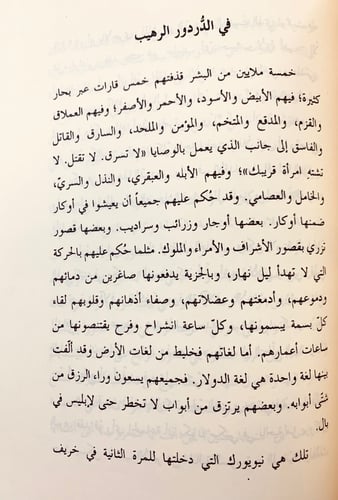 في الدُّردور الرهيب
خمسة ملايين من البشر قذفتهم خمس قارات عبر بحار
كثيرة؛ فيهم الأبيض والأسود، والأحمر والأصفر؛ وفيهم العملاق
والقزم، والمدقع والمتخم، والمؤمن والملحد، والسارق والقاتل
والفاسق إلى جانب الذي يعمل بالوصايا «لا تسرق. لا تقتل. لا
تشتهِ امرأة قريبك»؛ وفيهم الأبله والعبقري، والنذل والسريّ،
والخامل والعصامي. وقد حُكم عليهم جميعاً أن يعيشوا في أوكار
ضمنها أوكار. بعضها أوجار وزرائب وسراديب. وبعضها قصور
تزري بقصور الأشراف والأمراء والملوك. مثلما حُكم عليهم بالحركة
التي لا تهدأ ليل نهار، وبالجزية يدفعونها صاغرين من دمائهم
ودموعهم، وأدمغتهم وعضلاتهم، وصفاء أذهانهم وقلوبهم لقاء
كلّ بسمة يَبسمونها، وكلّ ساعة انشراح وفرح يقتنصونها من
ساعات أعمارهم. أما لغاتهم فخليط من لغات الأرض وقد ألّفت
بينها لغة واحدة هي لغة الدولار. فجميعهم يسعون وراء الرزق من
شتّى أبوابه. وبعضهم يرتزق من أبواب لا تخطر حتى لإبليس في
بال.
تلك هي نيويورك التي دخلتها للمرة الثانية في خريف